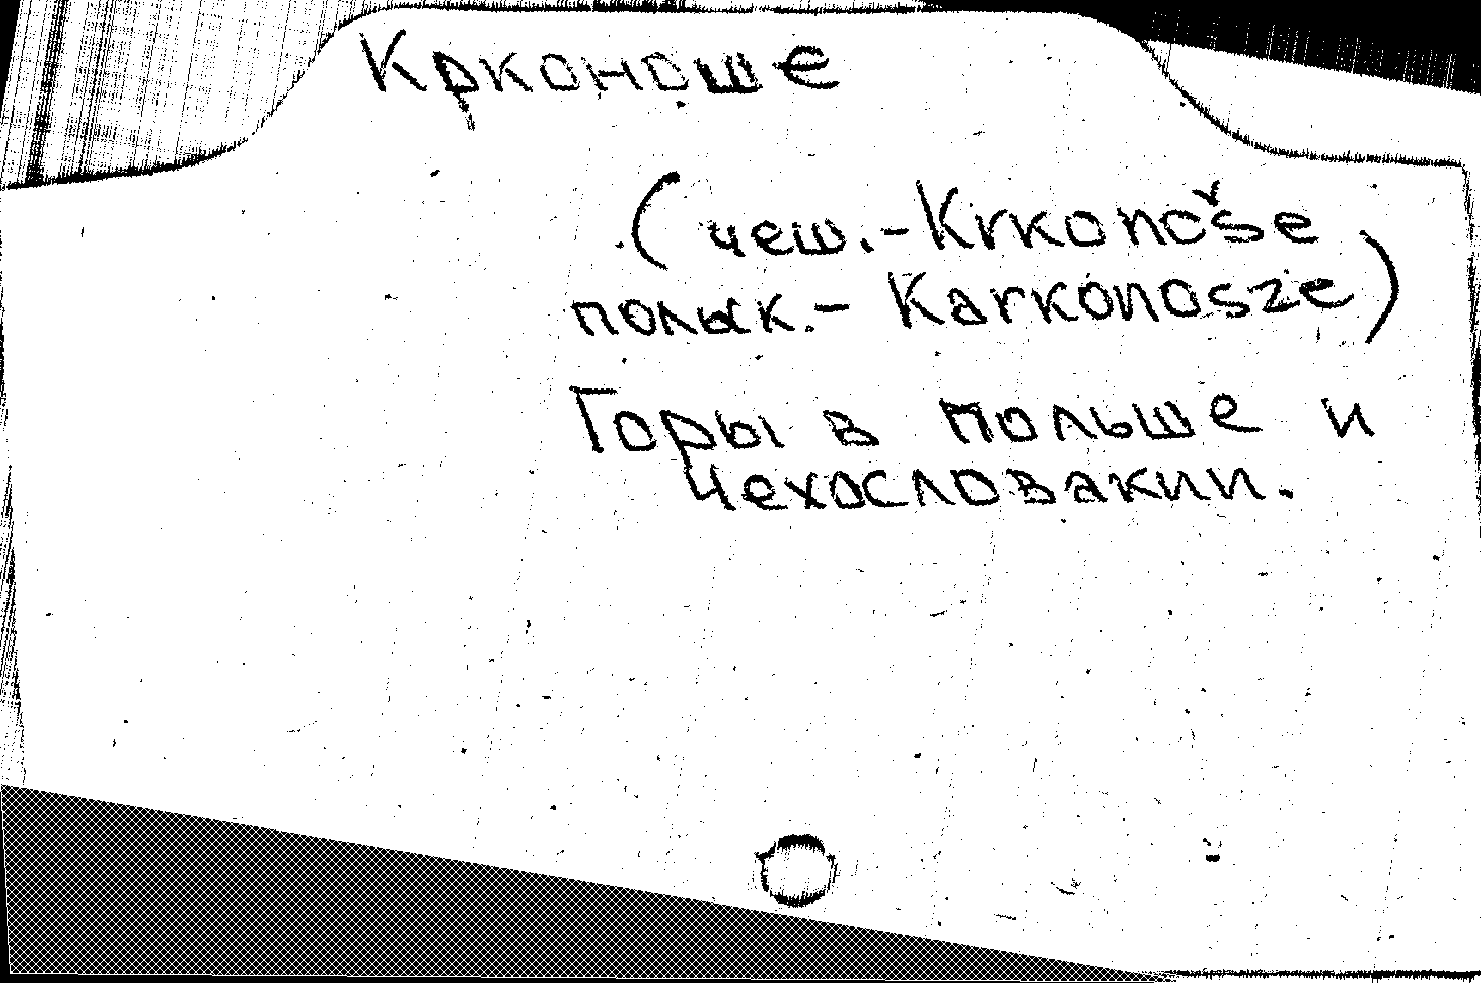 Крконоше
(чеш.-Krkonoše
польск.- Karkonosze)
Горы в Польше и
Чехословакии.